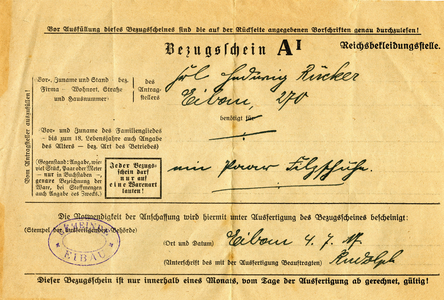 Vor Ausfüllung dieses Bezugsscheines sind die auf der Rückseite angegebenen Vorschriften genau durchzulesen!
Bezugsschein A I
Reichsbekleidungsstelle.
Vom Antragsteller auszufüllen!
Vor-, Zuname und Stand bez.
Firma - Wohnort, Straße
und Hausnummer
des
Antrag-
stellers
Frl Hedwig Rücker
Eibau, 270
benötigt für
Vor- und Zuname des Familiengliedes
- bis zum 18. Lebensjahre auch Angabe
des Alters - bez. Art des Betriebes)
(Gegenstand: Angabe, wie
viel Stück, Paar oder Meter
- nur in Buchstaben -,
genaue Bezeichnung der
Ware, bei Stoffmengen
auch Angabe des Zwecks.)
Jeder Bezugs-
schein darf
nur auf
eine Warenart
lauten!
ein Paar Filzschuhe.
Die Notwendigkeit der Anschaffung wird hiermit unter Ausfertigung des Bezugsscheines bescheinigt:
(Stempel der
Behörde)
GEMEINDE
EIBAU
(Ort und Datum)
Eibau 4. 7. 17.
(Unterschrift des mit der Ausfertigung Beauftragten)
Rudolph
Dieser Bezugsschein ist nur innerhalb eines Monats, vom Tage der Ausfertigung ab gerechnet, gültig!